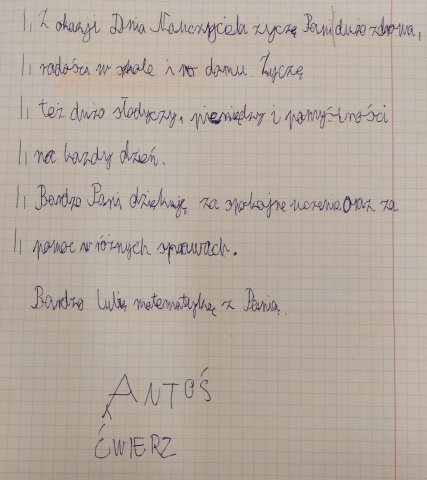 Z okazji Dnia Nauczyciela życzę Pani dużo zdrowa,
radości w szkole i w domu. Życzę
też dużo słodyczy, pieniędzy i pomyślności
na każdy dzień.
Bardzo Pani dziękuję za spokojne uczenie oraz za
pomoc w różnych sprawach.
Bardzo lubię matematykę z Panią.
ANTOŚ
ĆWIERZ